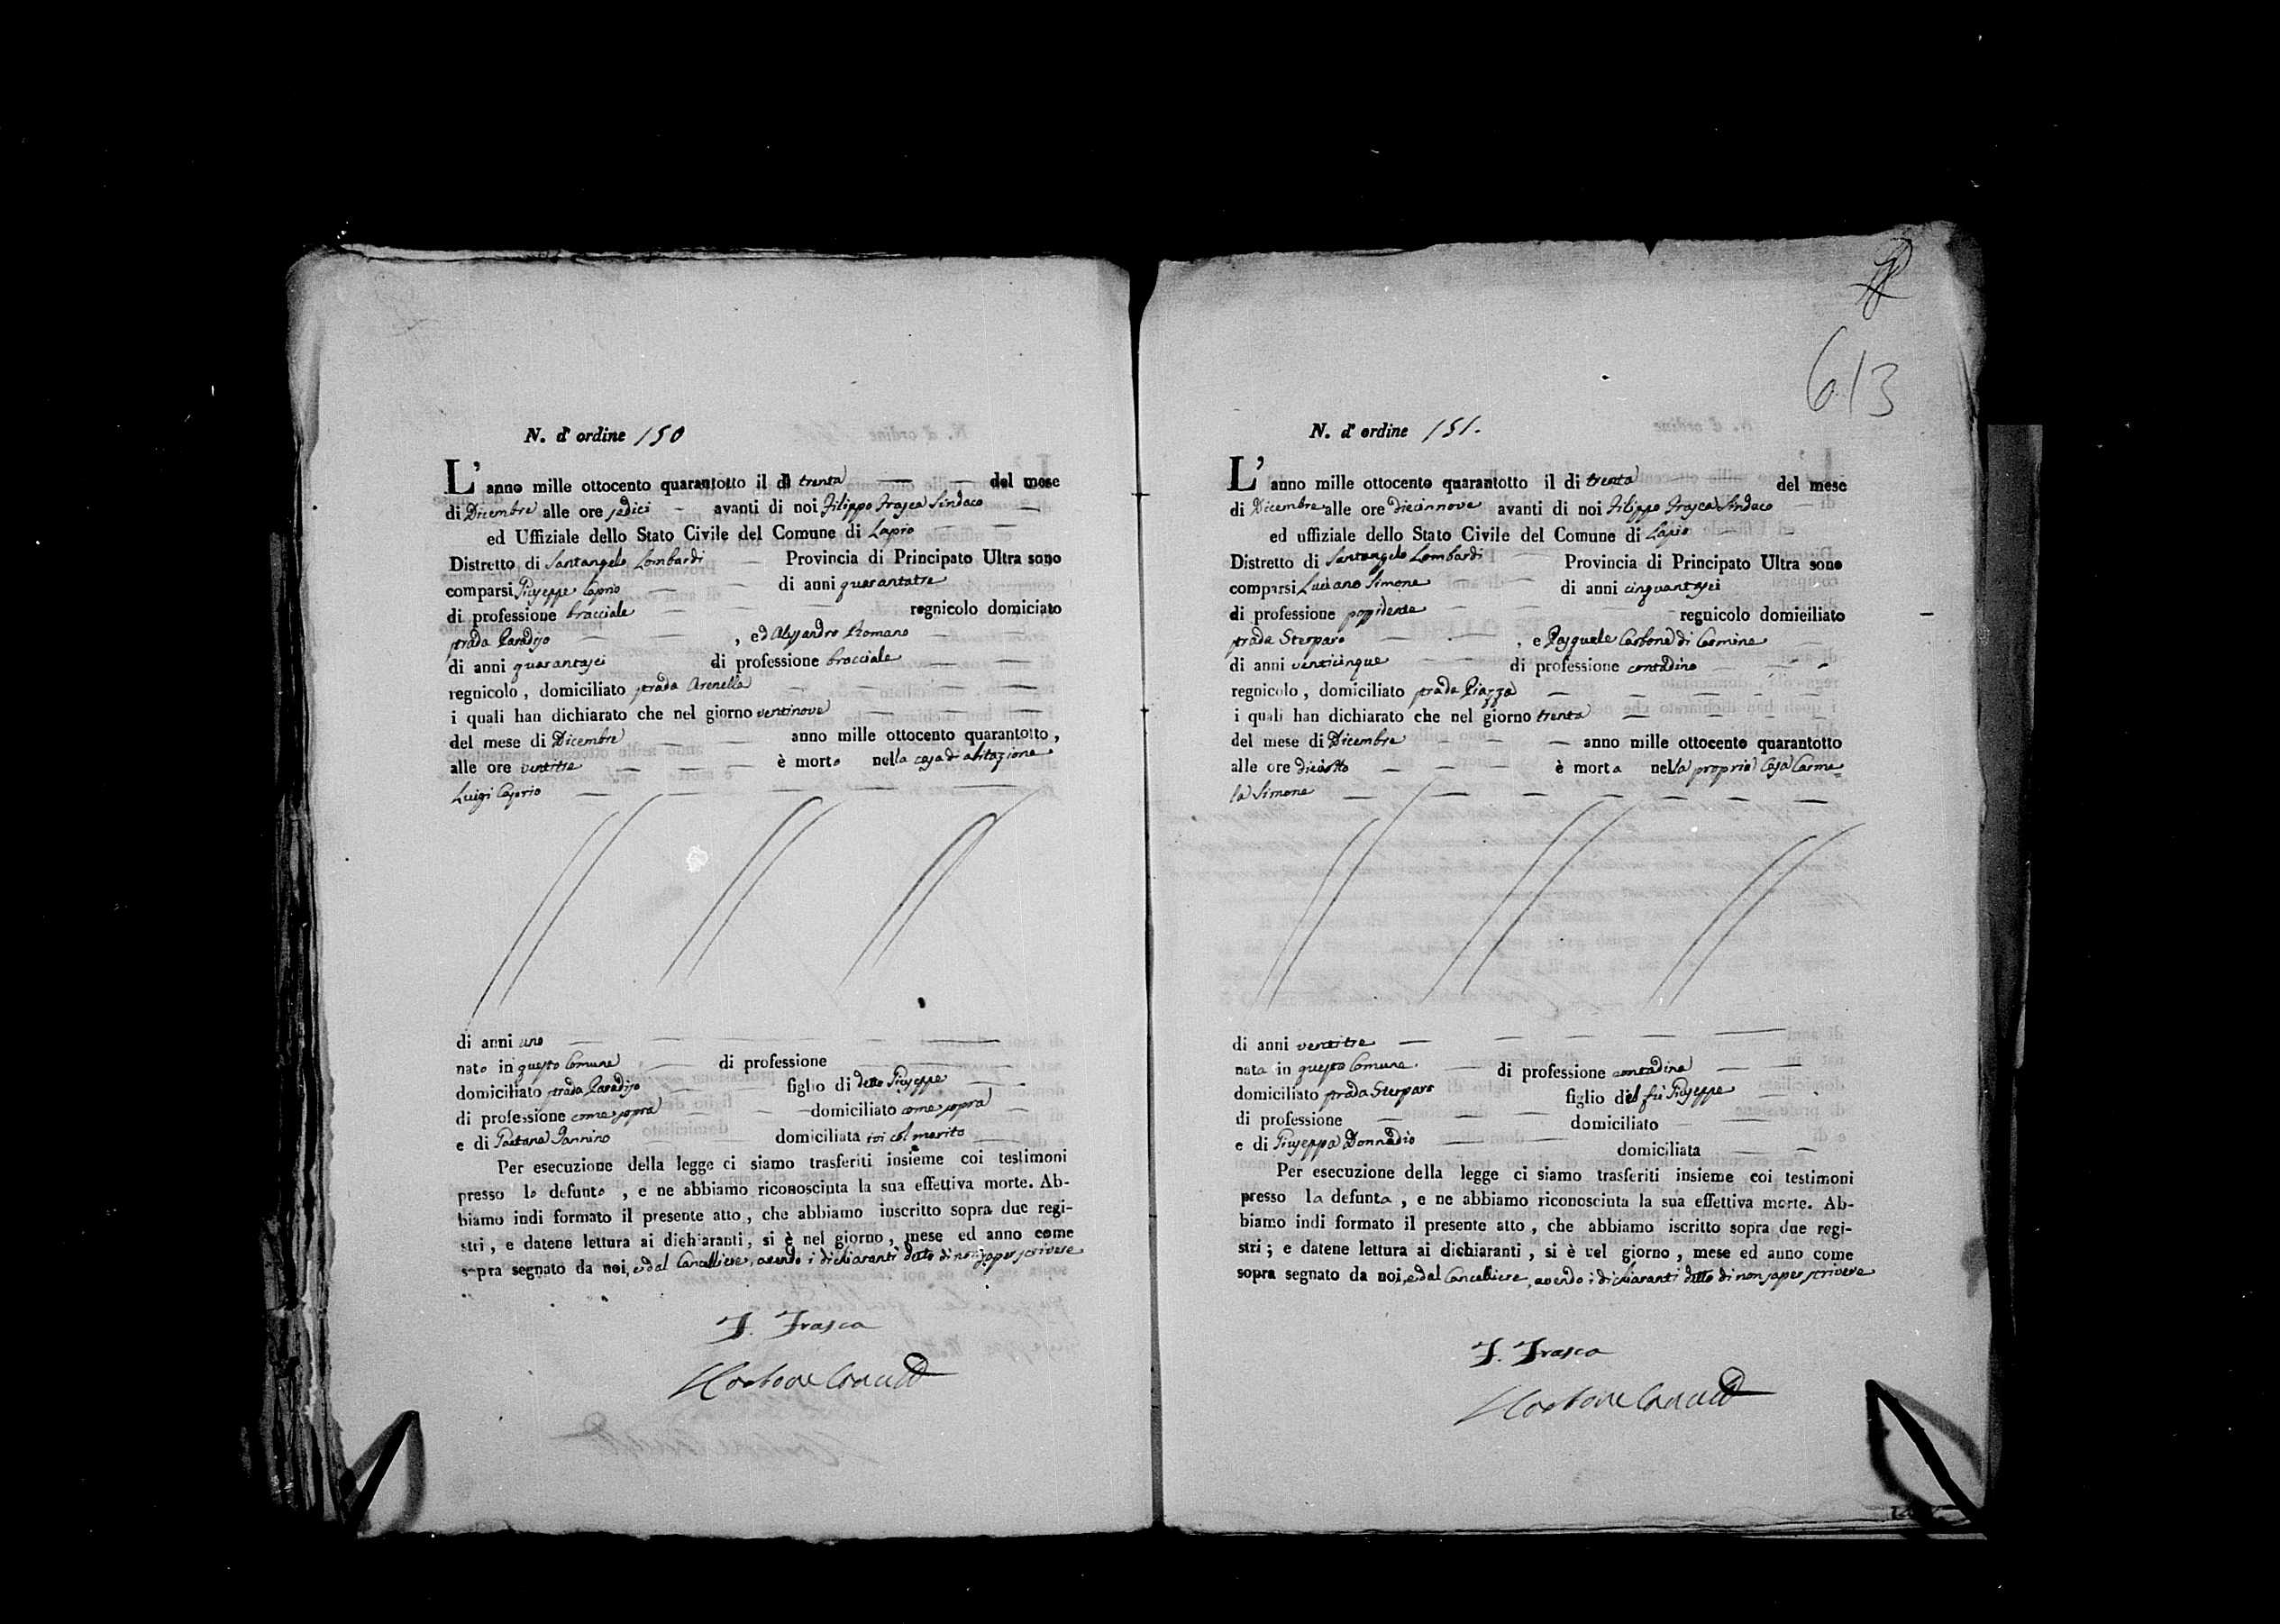 N. d' ordine 150
L' anno mille ottocento quarantotto il dì trenta — — del mese
di Dicembre alle ore sedici - avanti di noi Filippo Frasca Sindaco —
ed Uffiziale dello Stato Civile del Comune di Lapio — —
Distretto di Santangelo Lombardi — Provincia di Principato Ultra sono
comparsi Giuseppe — di anni quarantatre
di professione bracciale — — — regnicolo domiciato
strada Paradiso — — , ed Alessandro Romano — —
di anni quarantasei di professione bracciale — —
regnicolo , domiciliato strada Arenella — — — —
i quali han dichiarato che nel giorno ventinove — — — —
del mese di Dicembre — — anno mille ottocento quarantotto ,
alle ore ventitre — — — è morto nella casa di abitazione
Luigi — — — — —
di anni uno — — — — —
nato in questo Comune — di professione —
domiciliato strada Paradiso — figlio di detto Giuseppe — -
di professione come sopra — — — domiciliato come sopra —
e di Gaetana Iannino — domiciliata ivi col marito —
Per esecuzione della legge ci siamo trasferiti insieme coi testimoni
presso lo defunto , e ne abbiamo riconosciuta la sua effettiva morte. Ab-
biamo indi formato il presente atto , che abbiamo inscritto sopra due regi-
stri , e datene lettura ai dichiaranti, si è nel giorno , mese ed anno come
sopra segnato da noi, e dal Cancelliere, avendo i dichiaranti detto di non saper scrivere
F. Frasca
Carbone
613
N. d' ordine 151.
L' anno mille ottocento quarantotto il di trenta — del mese
di Dicembre alle ore diecinnove avanti di noi Filippo Frasca Sindaco -
ed uffiziale dello Stato Civile del Comune di Lapio — —
Distretto di Santangelo Lombardi — Provincia di Principato Ultra sono
comparsi Luciano Simone — di anni cinquantasei
di professione possidente — — — regnicolo domiciliato
strada Sterparo — — , e Pasquale Carbone di Carmine —
di anni venticinque — di professione contadino — - -
regnicolo , domiciliato strada Piazza — — — - -
i quali han dichiarato che nel giorno trenta — — — - -
del mese di Dicembre — — — anno mille ottocento quarantotto
alle ore dieciotto — — — è morta nella propria casa Carme=
la Simone — — — — — — — —
di anni ventitre — — — — —
nata in questo Comune. — di professione contadina — —
domiciliato strada Sterparo figlio del fù Giuseppe — -
di professione — — — domiciliato —
e di Giuseppa Donnadio — — domiciliata — —
Per esecuzione della legge ci siamo trasferiti insieme coi testimoni
presso la defunta , e ne abbiamo riconosciuta la sua effettiva morte. Ab-
biamo indi formato il presente atto , che abbiamo iscritto sopra due regi-
stri ; e datene lettura ai dichiaranti , si è nel giorno , mese ed anno come
sopra segnato da noi, e dal Cancelliere, avendo i dichiaranti detto di non saper scrivere
F. Frasca
Carbone